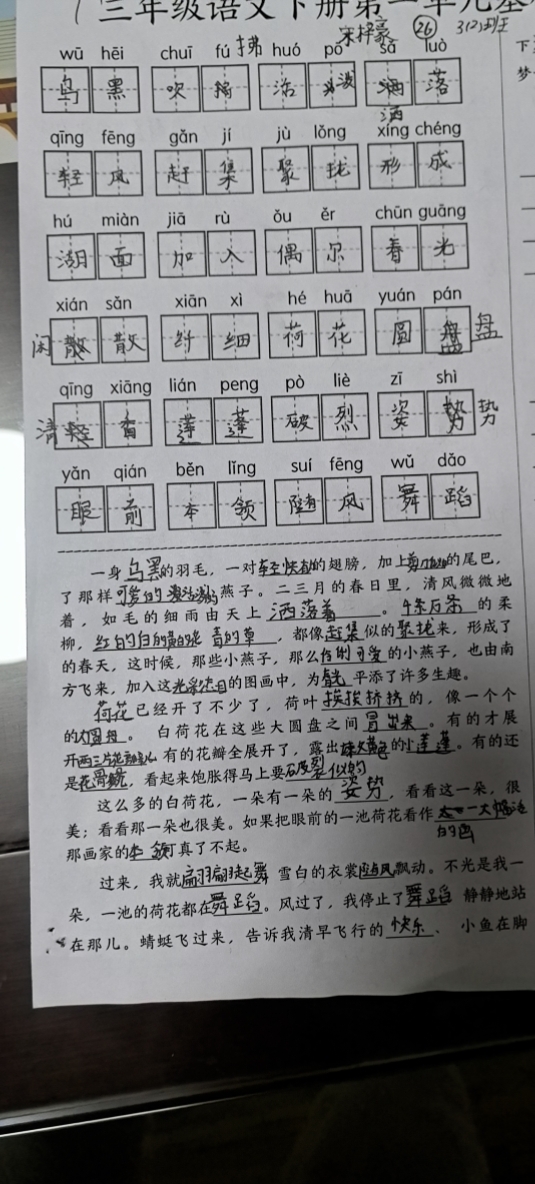 三年级语文下册第一单元基
宋梓豪 26 3(2)班
wū hēi chuī fú 拂 huó pō sǎ luò
乌 黑 吹 活 泼 洒 落
洒
qīng fēng gǎn jí jù lǒng xíng chéng
轻 风 赶 集 聚 拢 形 成
hú miàn jiā rù ǒu ěr chūn guāng
湖 面 加 入 偶 尔 春 光
xián sǎn xiān xì hé huā yuán pán
闲 散 散 纤 细 荷 花 圆 盘 盘
qīng xiāng lián peng pò liè zī shì
清 轻 香 莲 蓬 破 烈 姿 势 势
yǎn qián běn lǐng suí fēng wǔ dǎo
眼 前 本 领 随 风 舞 蹈
一身乌黑的羽毛，一对轻快有的翅膀，加上剪刀似的的尾巴，
了那样可爱的活泼的燕子。二三月的春日里，清风微微地
着，如毛的细雨由天上洒落着。千条万条的柔
柳，红的白的黄的花 青的草，都像赶集似的聚拢来，形成了
的春天，这时候，那些小燕子，那么伶俐可爱的小燕子，也由南
方飞来，加入这光彩夺目的图画中，为春光平添了许多生趣。
荷花已经开了不少了，荷叶挨挨挤挤的，像一个个
的大圆盘。白荷花在这些大圆盘之间冒出来。有的才展
开两三片花瓣儿 有的花瓣全展开了，露出嫩黄色的小莲蓬。有的还
是花骨朵，看起来饱胀得马上要破裂似的
这么多的白荷花，一朵有一朵的姿势，看看这一朵，很
美；看看那一朵也很美。如果把眼前的一池荷花看作一大幅活
的画
那画家的本领可真了不起。
过来，我就翩翩起舞 雪白的衣裳随风飘动。不光是我一
朵，一池的荷花都在舞蹈。风过了，我停止了舞蹈 静静地站
在那儿。蜻蜓飞过来，告诉我清早飞行的快乐、小鱼在脚